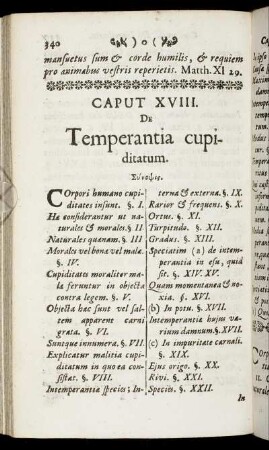 340 )o(
mansuetus sum & corde humilis, & requiem
pro animabus vestris reperietis. Matth. XI 29.
CAPUT XVIII.
DE
Temperantia cupi-
ditatum.
Σύνοψις.
COrpori humano cupi-
ditates insunt. §. I.
Hæ considerantur ut na-
turales & morales. §. II
Naturales quænam. §. III
Morales vel bonæ vel malæ.
§. IV.
Cupiditates moraliter ma-
læ feruntur in objecta
contra legem. §. V.
Objecta hæc sunt vel sal-
tem apparent carni
grata. §. VI.
Suntque innumera. §. VII.
Explicatur malitia cupi-
ditatum in quo ea con-
sistat. §. VIII.
Intemperantia species; In-
terna & externa. §. IX.
Rarior & frequens. §. X.
Ortus. §. XI.
Turpitudo. §. XII.
Gradus. §. XIII.
Speciatim (a) de intem-
perantia in esu, quid
sit. §. XIV. XV.
Quam momentanea & no-
xia. §. XVI.
(b) In potu. §. XVII.
Intemperantia hujus va-
rium damnum. §. XVII.
(c) In impuritate carnali.
§. XIX.
Ejus origo. §. XX.
Rivi. §. XXI.
Species. §. XXII.
In